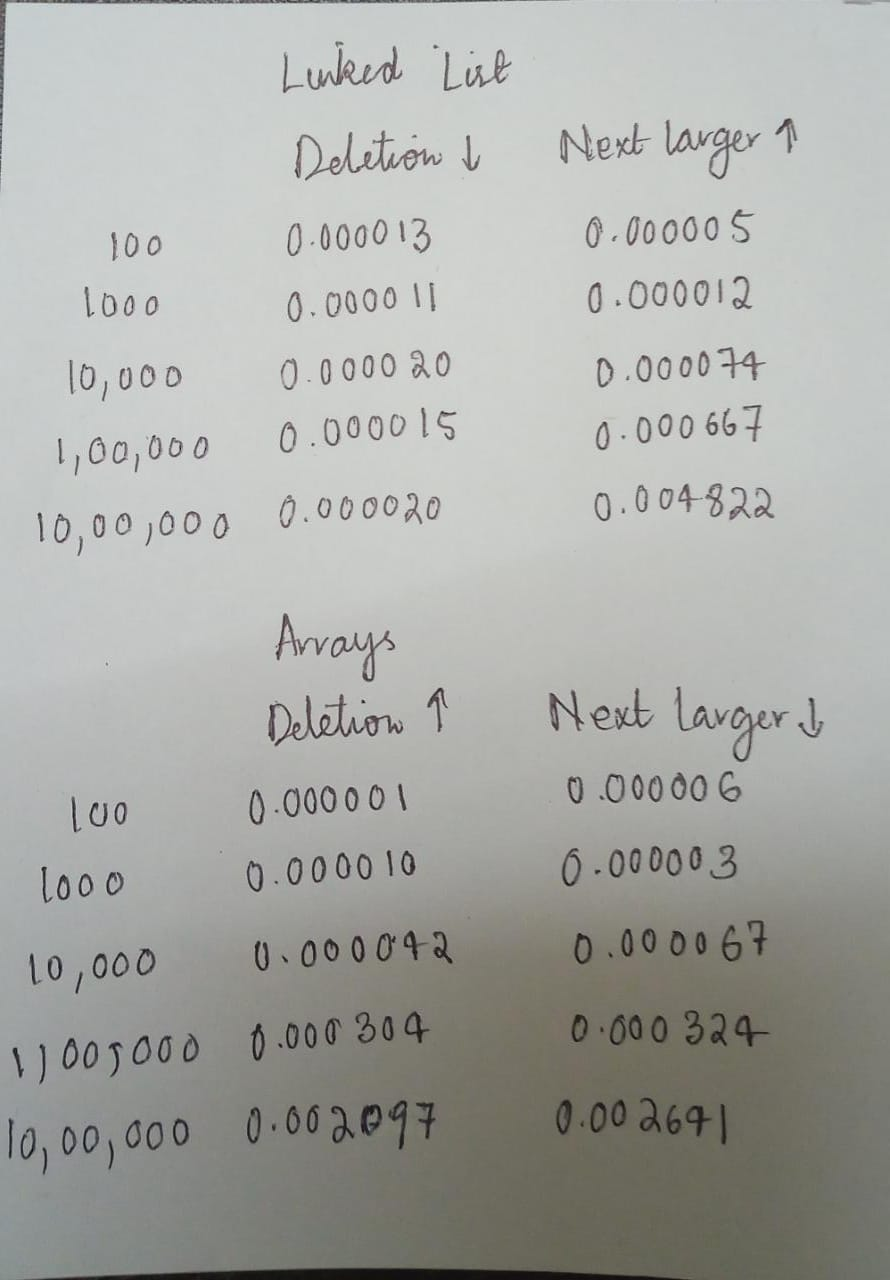 Linked List
Deletion ↓ Next larger ↑
100 0.000013 0.000005
1000 0.000011 0.000012
10,000 0.000020 0.000074
1,00,000 0.000015 0.000667
10,00,000 0.000020 0.004822
Arrays
Deletion ↑ Next larger ↓
100 0.000001 0.000006
1000 0.000010 0.000003
10,000 0.000042 0.000067
1,00,000 0.000304 0.000324
10,00,000 0.002097 0.002641